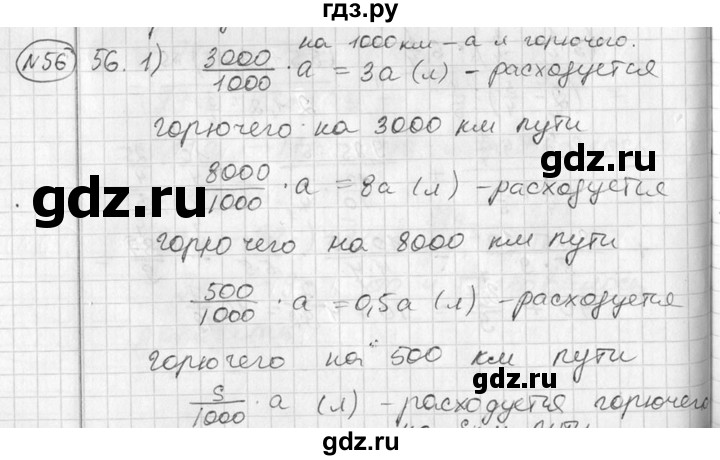 гдз.ру
на 1000 км – а л горючего.
№56 56. 1) 3000/1000 · a = 3a (л) – расходуется
горючего на 3000 км пути
8000/1000 · a = 8a (л) – расходуется
gdz.ru
gdz.ru
горючего на 8000 км пути
500/1000 · a = 0,5a (л) – расходуется
горючего на 500 км пути
gdz.ru
S/1000 · a (л) – расходуется горючего
gdz.ru